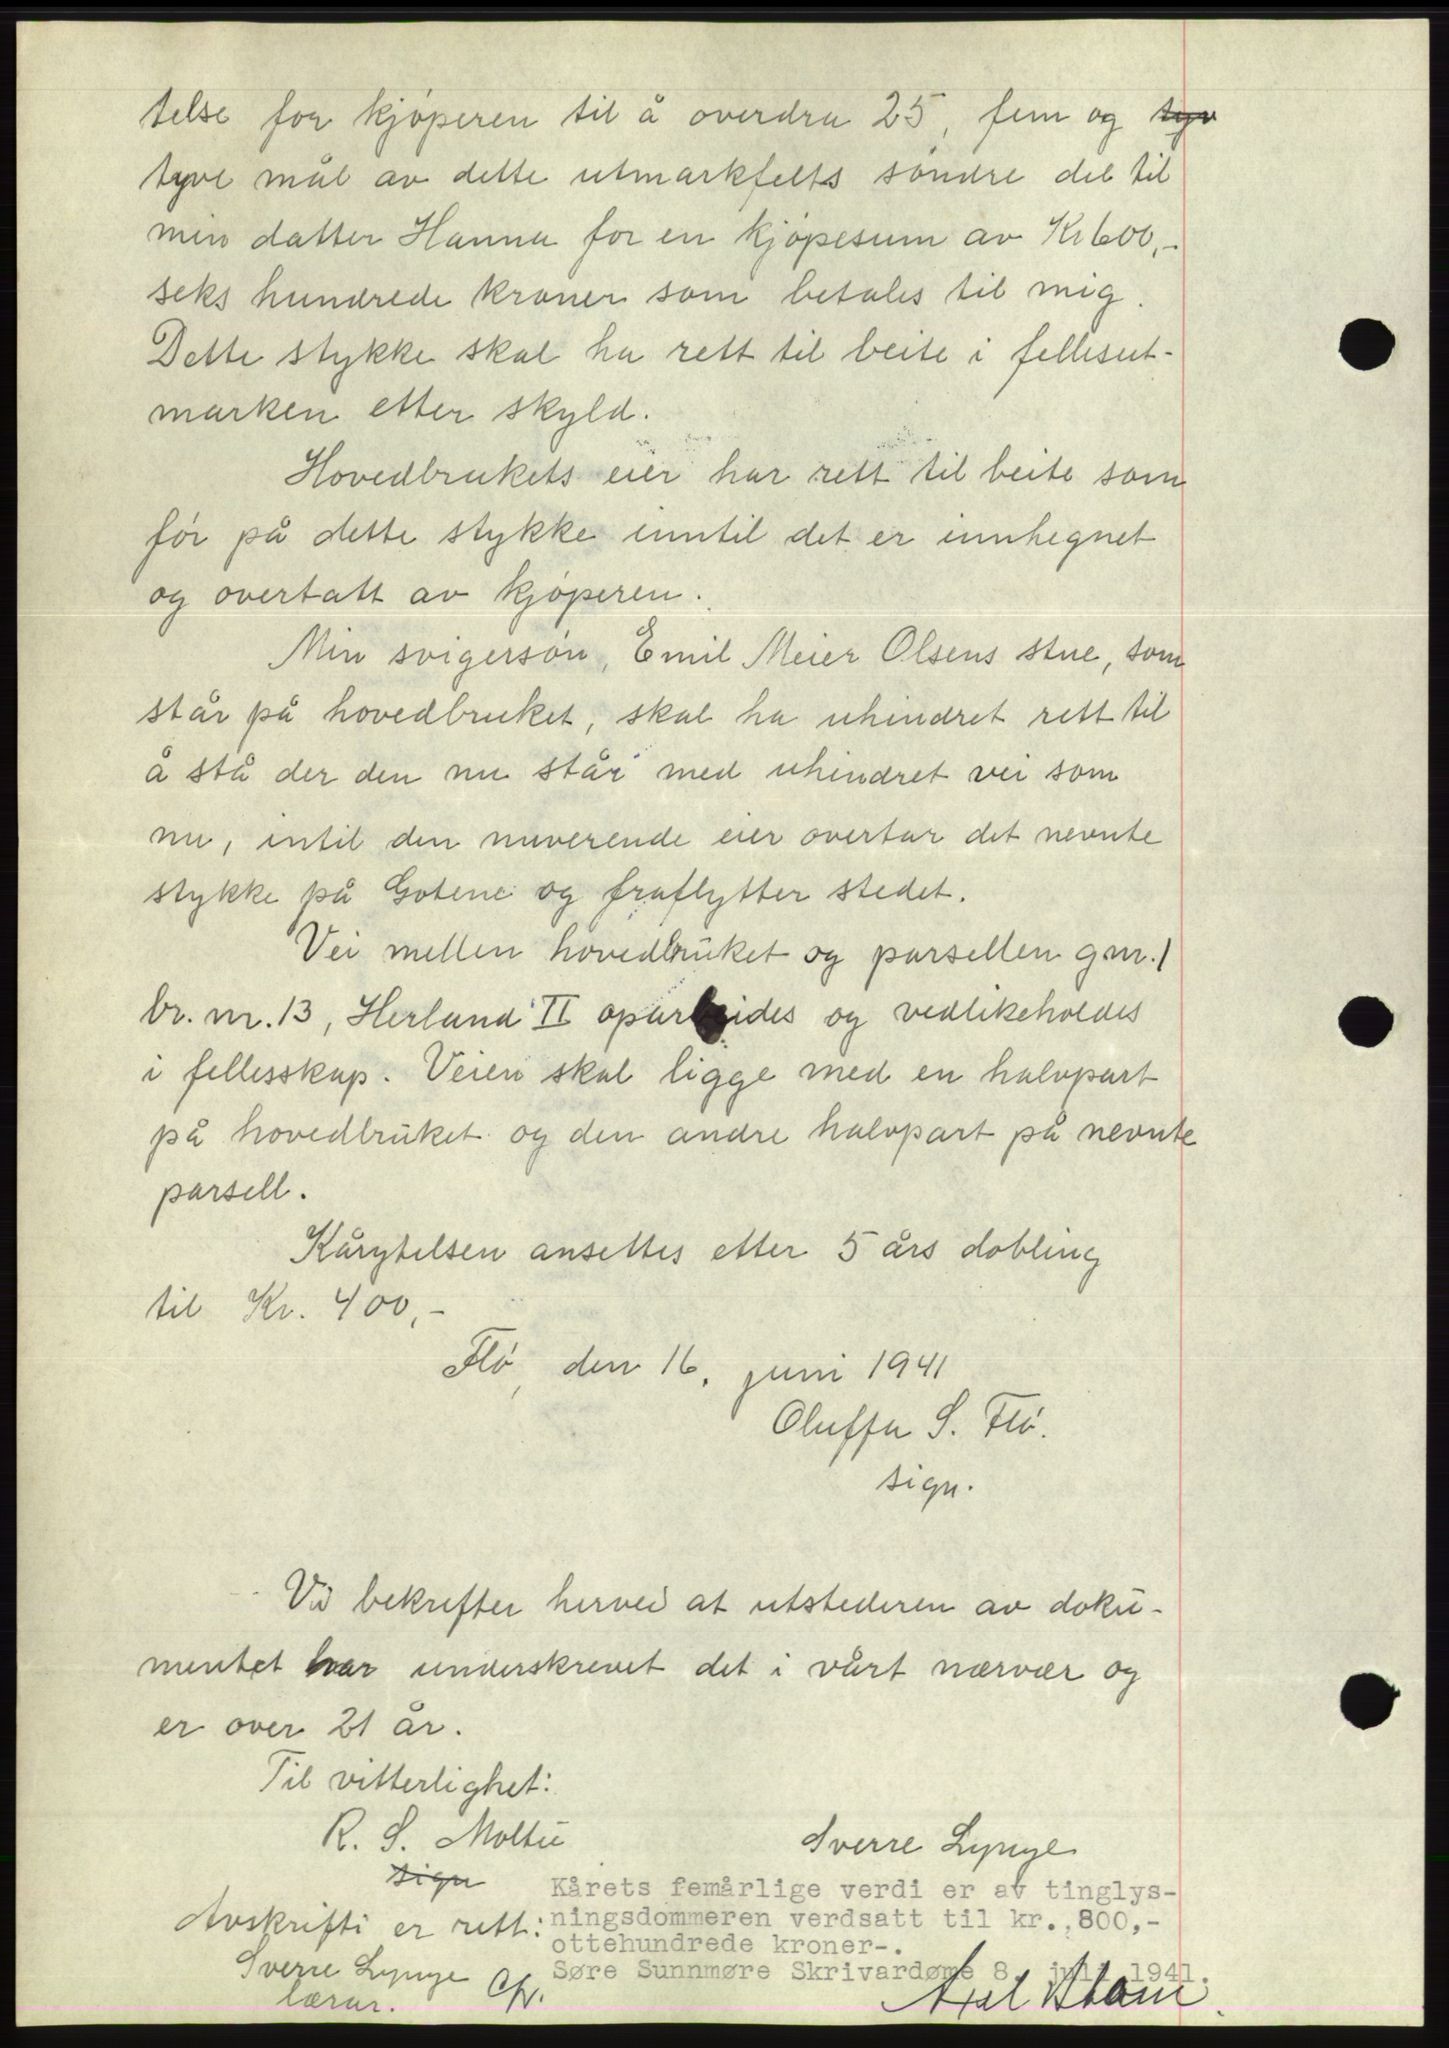 telse for kjøperen til å overdra 25, fem og tyv
tyve mål av dette utmarkfelts søndre del til
min datter Hanna for en kjøpesum av Kr 600,-
seks hundrede kroner som betales til mig.
Dette stykke skal ha rett til beite i fellesut-
marken etter skyld.
Hovedbrukets eier har rett til beite som
før på dette stykke inntil det er innhegnet
og overtatt av kjøperen.
Min svigersøn, Emil Meier Olsens stue, som
står på hovedbruket, skal ha uhindret rett til
å stå der den nu står med uhindret vei som
nu, intil den nuverende eier overtar det nevnte
stykke på Gotene og fraflytter stedet.
Vei mellen hovedbruket og parsellen gnr. 1
br. nr. 13, Herland II oparbeides og vedlikeholdes
i fellesskap. Veien skal ligge med en halvpart
på hovedbruket og den andre halvpart på nevnte
parsell.
Kårytelsen ansettes etter 5 års dobling
til Kr. 400,-
Flø, den 16. juni 1941
Oluffa S. Flø.
sign.
Vi bekrefter herved at utstederen av doku-
mentet har underskrevet det i vårt nærvær og
er over 21 år.
Til vitterlighet:
R. S. Moltu Sverre Lynge
sign
Kårets femårlige verdi er av tinglys-
Avskrifti er rett: ningsdommeren verdsatt til kr. 800,-
ottehundrede kroner-.
Sverre Lynge Søre Sunnmøre Skrivardøme 8. juli 1941.
lærar.